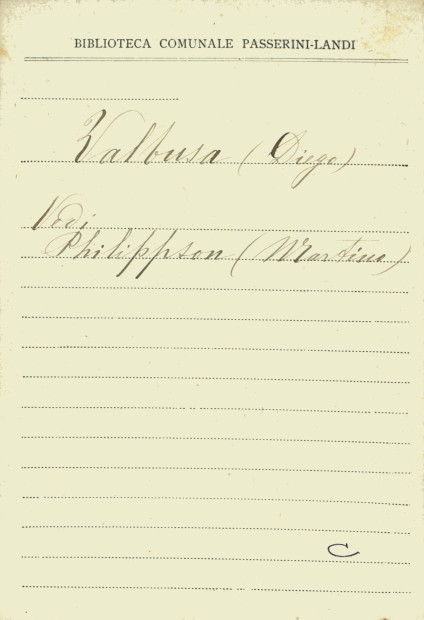 BIBLIOTECA COMUNALE PASSERINI-LANDI
Valbusa (Diego)
Vedi
Philippson (Martino)
C